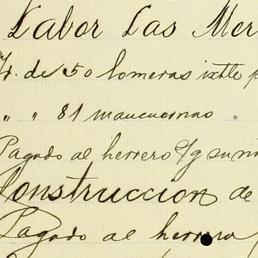 Labor Las Mer
de 50 lomeras ixtle p
" " 81 mancuernas "
Pagado al herrero
Construccion de
Pagado al herrero